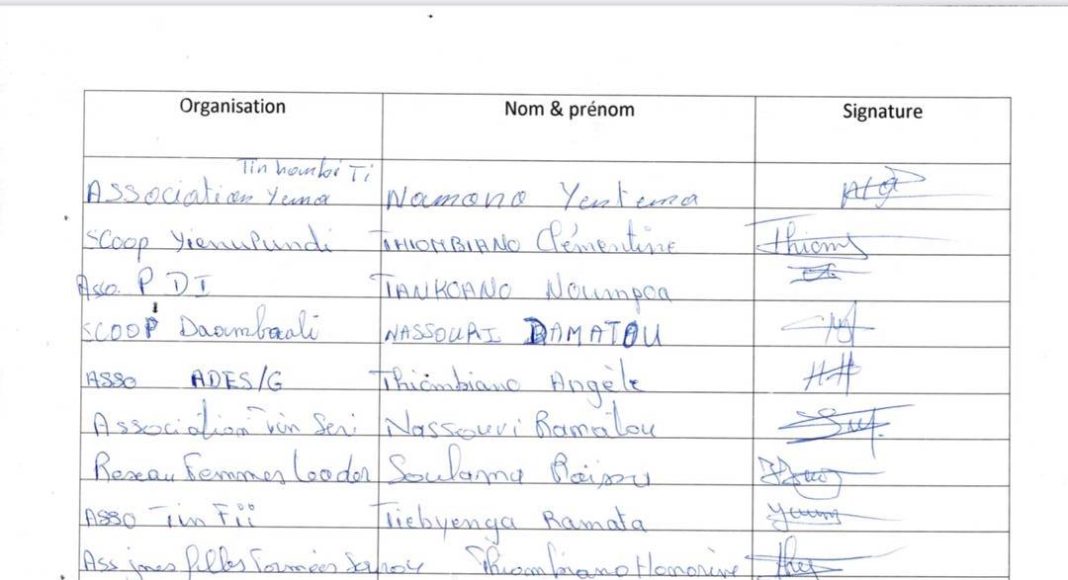 Organisation Nom & prénom Signature
Tin hambi Ti
Association Yema Namono Yentema
SCoop Yienupundi THIOMBIANO Clémentine Thiom
Asso. PDI TANKOANO Noumpoa
SCOOP Daambaali NASSOURI RAMATOU
ASSO ADES/G Thiombiano Angèle
Association Tin Seri Nassouri Ramatou
Reseau Femmes Leader Soulama
ASSO Tin Fii Tiebyenga Ramata
Ass jnes filles Formées Thiombiano Honorine